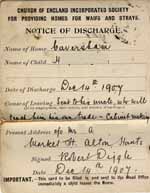 CHURCH OF ENGLAND INCORPORATED SOCIETY
FOR PROVIDING HOMES FOR WAIFS AND STRAYS.
NOTICE OF DISCHARGE.
Name of Home Caversham
Name of Child H
Date of Discharge Dec 14th 1907
Cause of Leaving Sent to his uncle, who will
teach him his own trade - Cabinet making
Present Address c/o Mr A
Market St. Alton, Hants
Signed Robert Diggle
Date Dec 14th 1907
IMPORTANT.—This card to be filled in and sent to the Head Office
immediately a child leaves the Home.